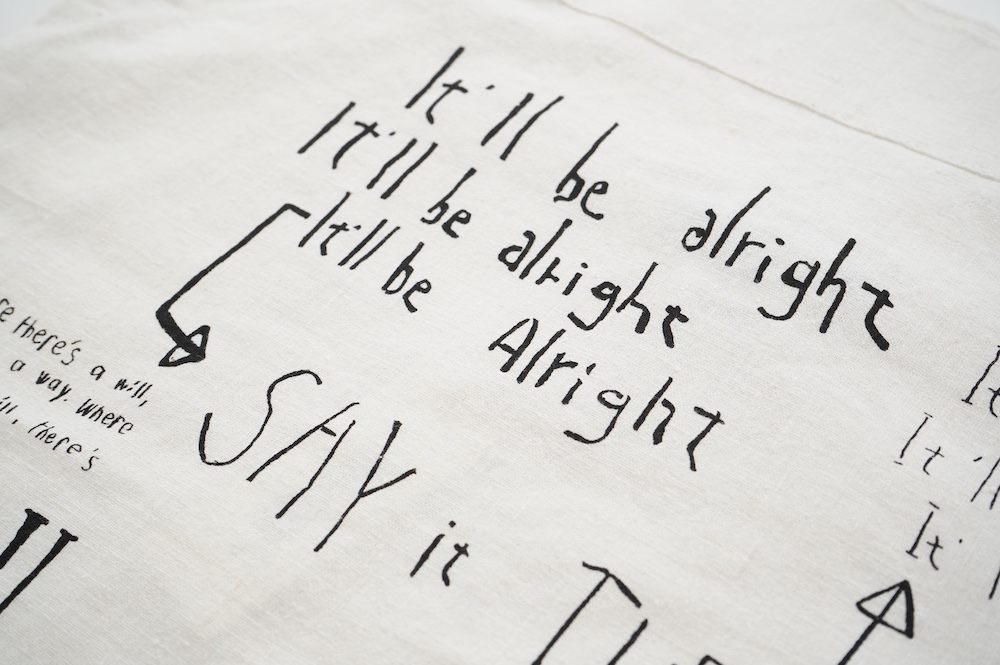 It'll be alright
It'll be alright
It'll be Alright
SAY it
there's a will,
a way. Where
there's
It'll
It